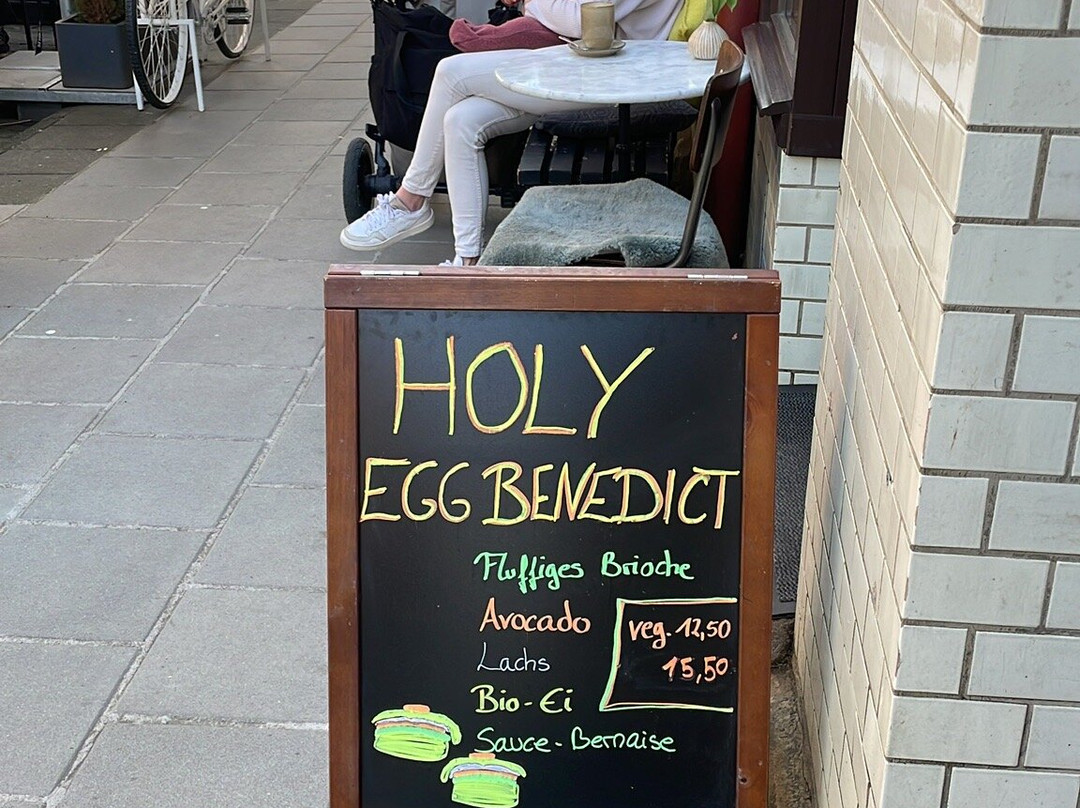 HOLY
EGG BENEDICT
Fluffiges Brioche
Avocado
Lachs
Bio-Ei
Sauce-Bernaise
veg. 12,50
15,50